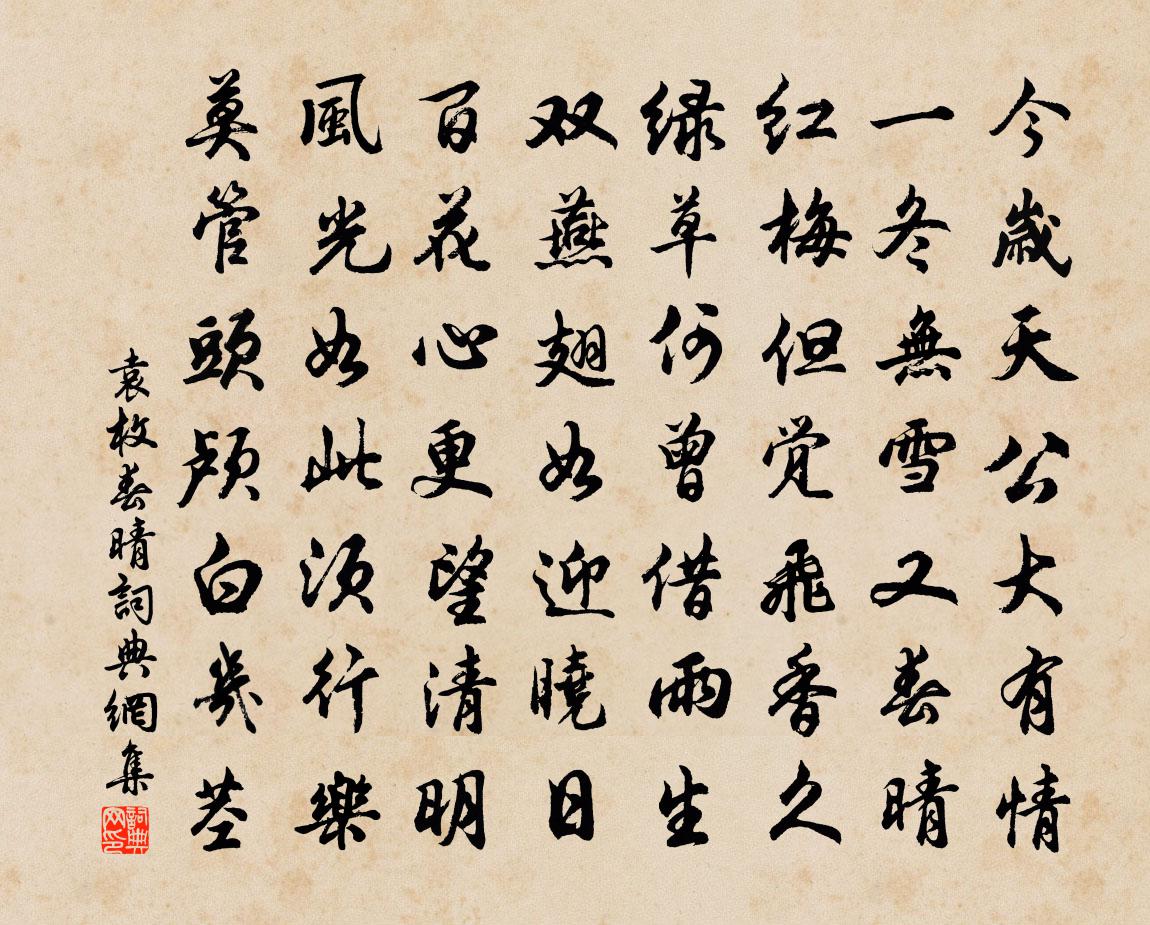 今歲天公大有情
一冬無雪又春晴
红梅但覺飛香久
緑草何曾借雨生
双燕翅如迎曉日
百花心更望清明
風光如此須行樂
莫管頭顱白幾莖
袁枚春晴詞典網集
詞典网印